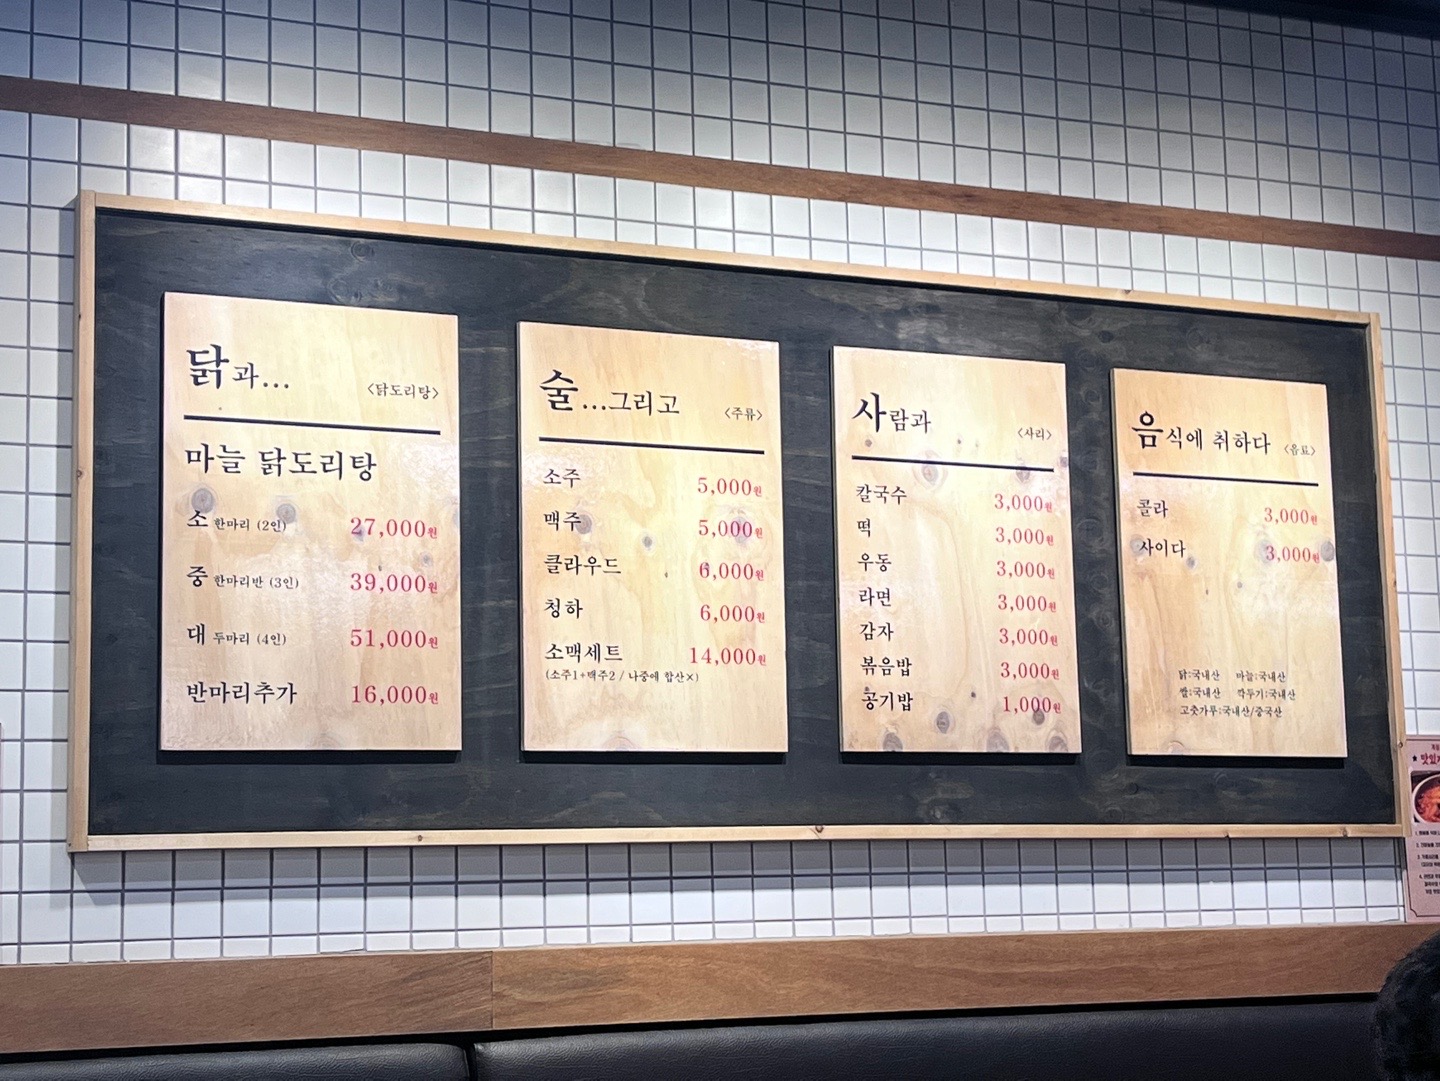 닭과... <닭도리탕>
마늘 닭도리탕
소 한마리 (2인) 27,000원
중 한마리반 (3인) 39,000원
대 두마리 (4인) 51,000원
반마리추가 16,000원
술...그리고 <주류>
소주 5,000원
맥주 5,000원
클라우드 6,000원
청하 6,000원
소맥세트 14,000원
(소주1+맥주2 / 나중에 합산×)
사람과 <사리>
칼국수 3,000원
떡 3,000원
우동 3,000원
라면 3,000원
감자 3,000원
볶음밥 3,000원
공기밥 1,000원
음식에 취하다 <음료>
콜라 3,000원
사이다 3,000원
닭:국내산 마늘:국내산
쌀:국내산 깍두기:국내산
고춧가루:국내산/중국산